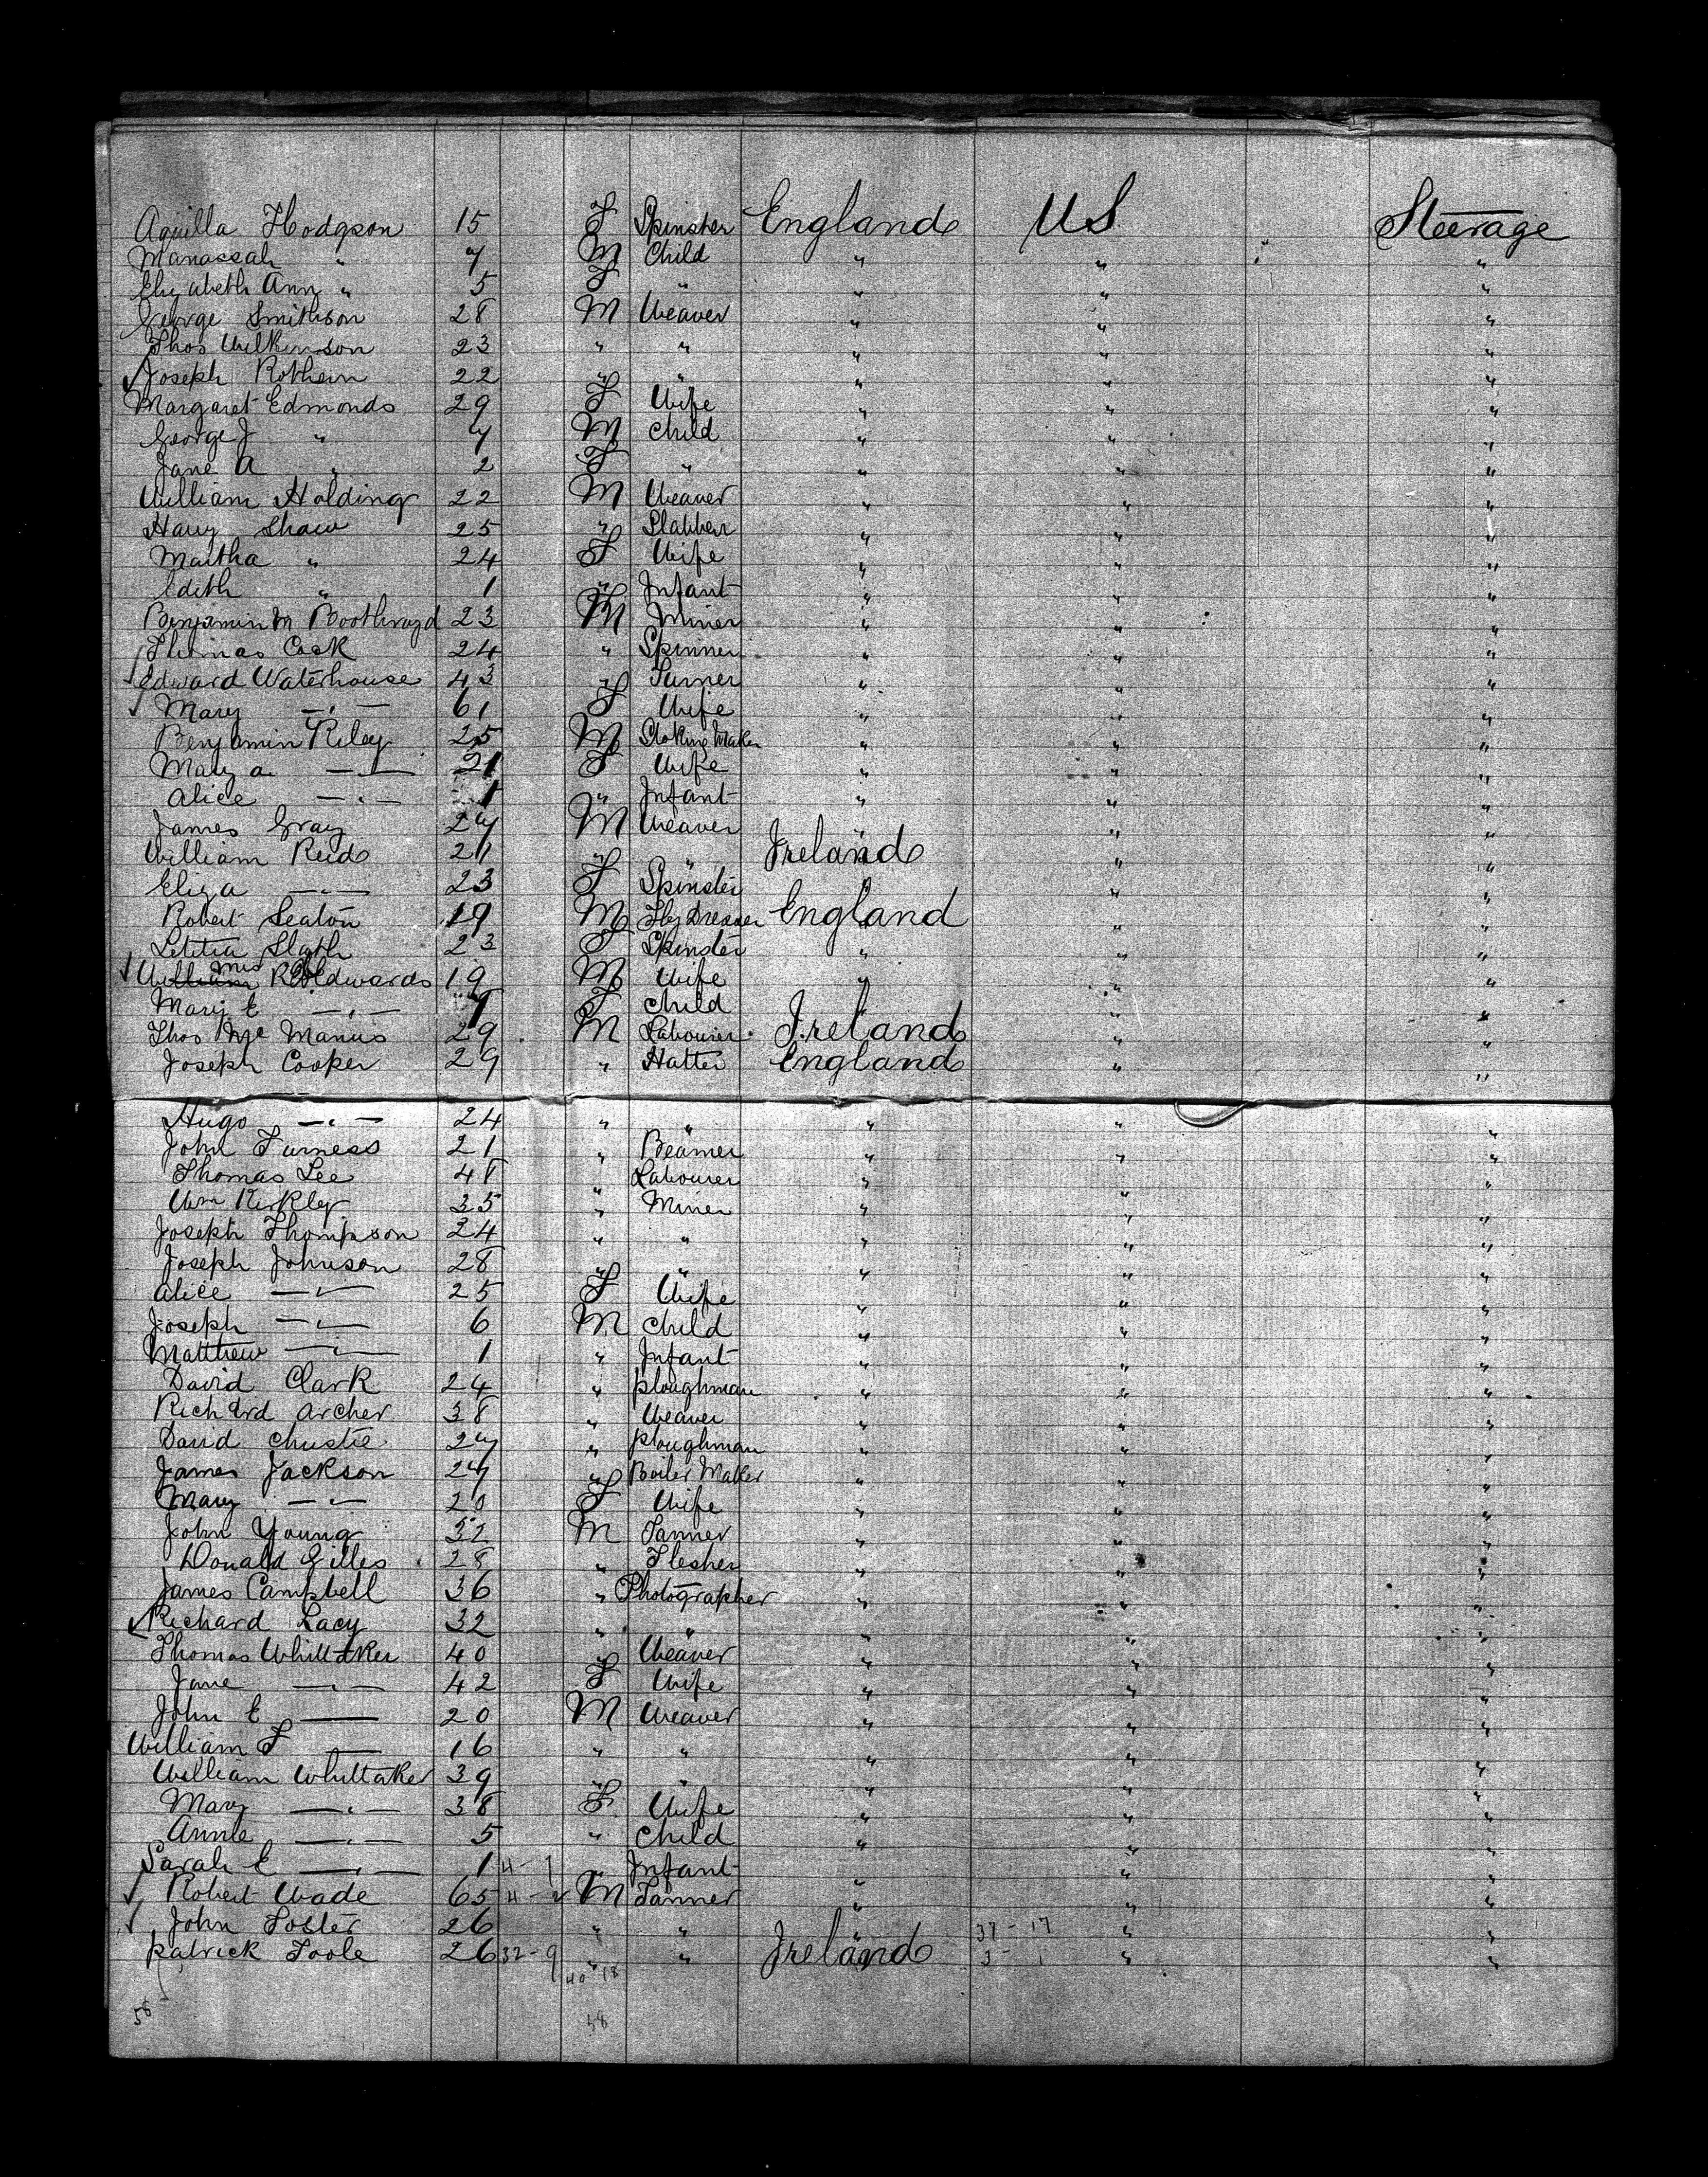 Aquilla Hodgson 15 F Spinster England US Steerage
Manassah " 7 M Child " " "
Elizabeth Ann " 5 F " " " "
George Smithson 28 M Weaver " " "
Thos Wilkinson 23 " " " " "
Joseph Rothern 22 " " " " "
Margaret Edmonds 29 F Wife " " "
George J " 4 M Child " " "
Jane A " 2 F " " " "
William Holding 22 M Weaver " " "
Harry Shaw 25 " Slabber " " "
Martha " 24 F Wife " " "
Edith " 1 " Infant " " "
Benjamin M Boothroyd 23 M Miner " " "
Thomas Cook 24 " Spinner " " "
Edward Waterhouse 43 " Turner " " "
Mary —"— 61 F Wife " " "
Benjamin Riley 25 M Stoking Maker " " "
Mary a. —"— 21 F Wife " " "
Alice —"— 1 " Infant " " "
James Gray 24 M Weaver " " "
William Reid 21 " " Ireland " "
Eliza —"— 23 F Spinster " " "
Robert Seaton 19 M Dresser England " "
Letitia 23 F Spinster " " "
Mrs R Edwards 19 M Wife " " "
Mary E —"— F Child " " "
Thos Mc Manus 29 M Labourer Ireland " "
Joseph Cooker 29 " Hatter England " "
Hugo —"— 24 " " " " "
John Furness 21 " Beamer " " "
Thomas Lee 48 " Labourer " " "
Wm Kirkley 35 " Miner " " "
Joseph Thompson 24 " " " " "
Joseph Johnson 28 " " " " "
Alice —"— 25 F Wife " " "
Joseph —"— 6 M Child " " "
Matthew —"— 1 " Infant " " "
David Clark 24 " Ploughman " " "
Richard Archer 38 " Weaver " " "
David Christie 24 " Ploughman " " "
James Jackson 24 " Boiler Maker " " "
Mary —"— 20 F Wife " " "
John Young 32 M Tanner " " "
Donald Gilles 28 " Flesher " " "
James Campbell 36 " Photographer " " "
Richard Lacy 32 " " " " "
Thomas Whittaker 40 " Weaver " " "
Jane —"— 42 F Wife " " "
John E —— 20 M Weaver " " "
William F —— 16 " " " " "
William Whittaker 39 " " " " "
Mary —"— 38 F Wife " " "
Annie —"— 5 " Child " " "
Sarah E —"— 1 " Infant " " "
Robert Wade 65 M Tanner " " "
John Foster 26 " " " 37-17 " "
Patrick Toole 26 32-9 " " Ireland " "
40 18
58 58